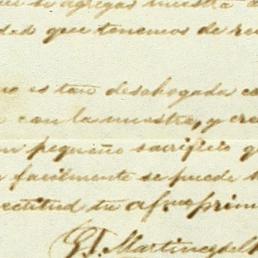 se agregas nuestra
dad que tenemos de
no es tan desahogada
con la nuestra, y
pequeño sacrificio
facilmente se puede
rectitud tu afmo primo
Martinez del